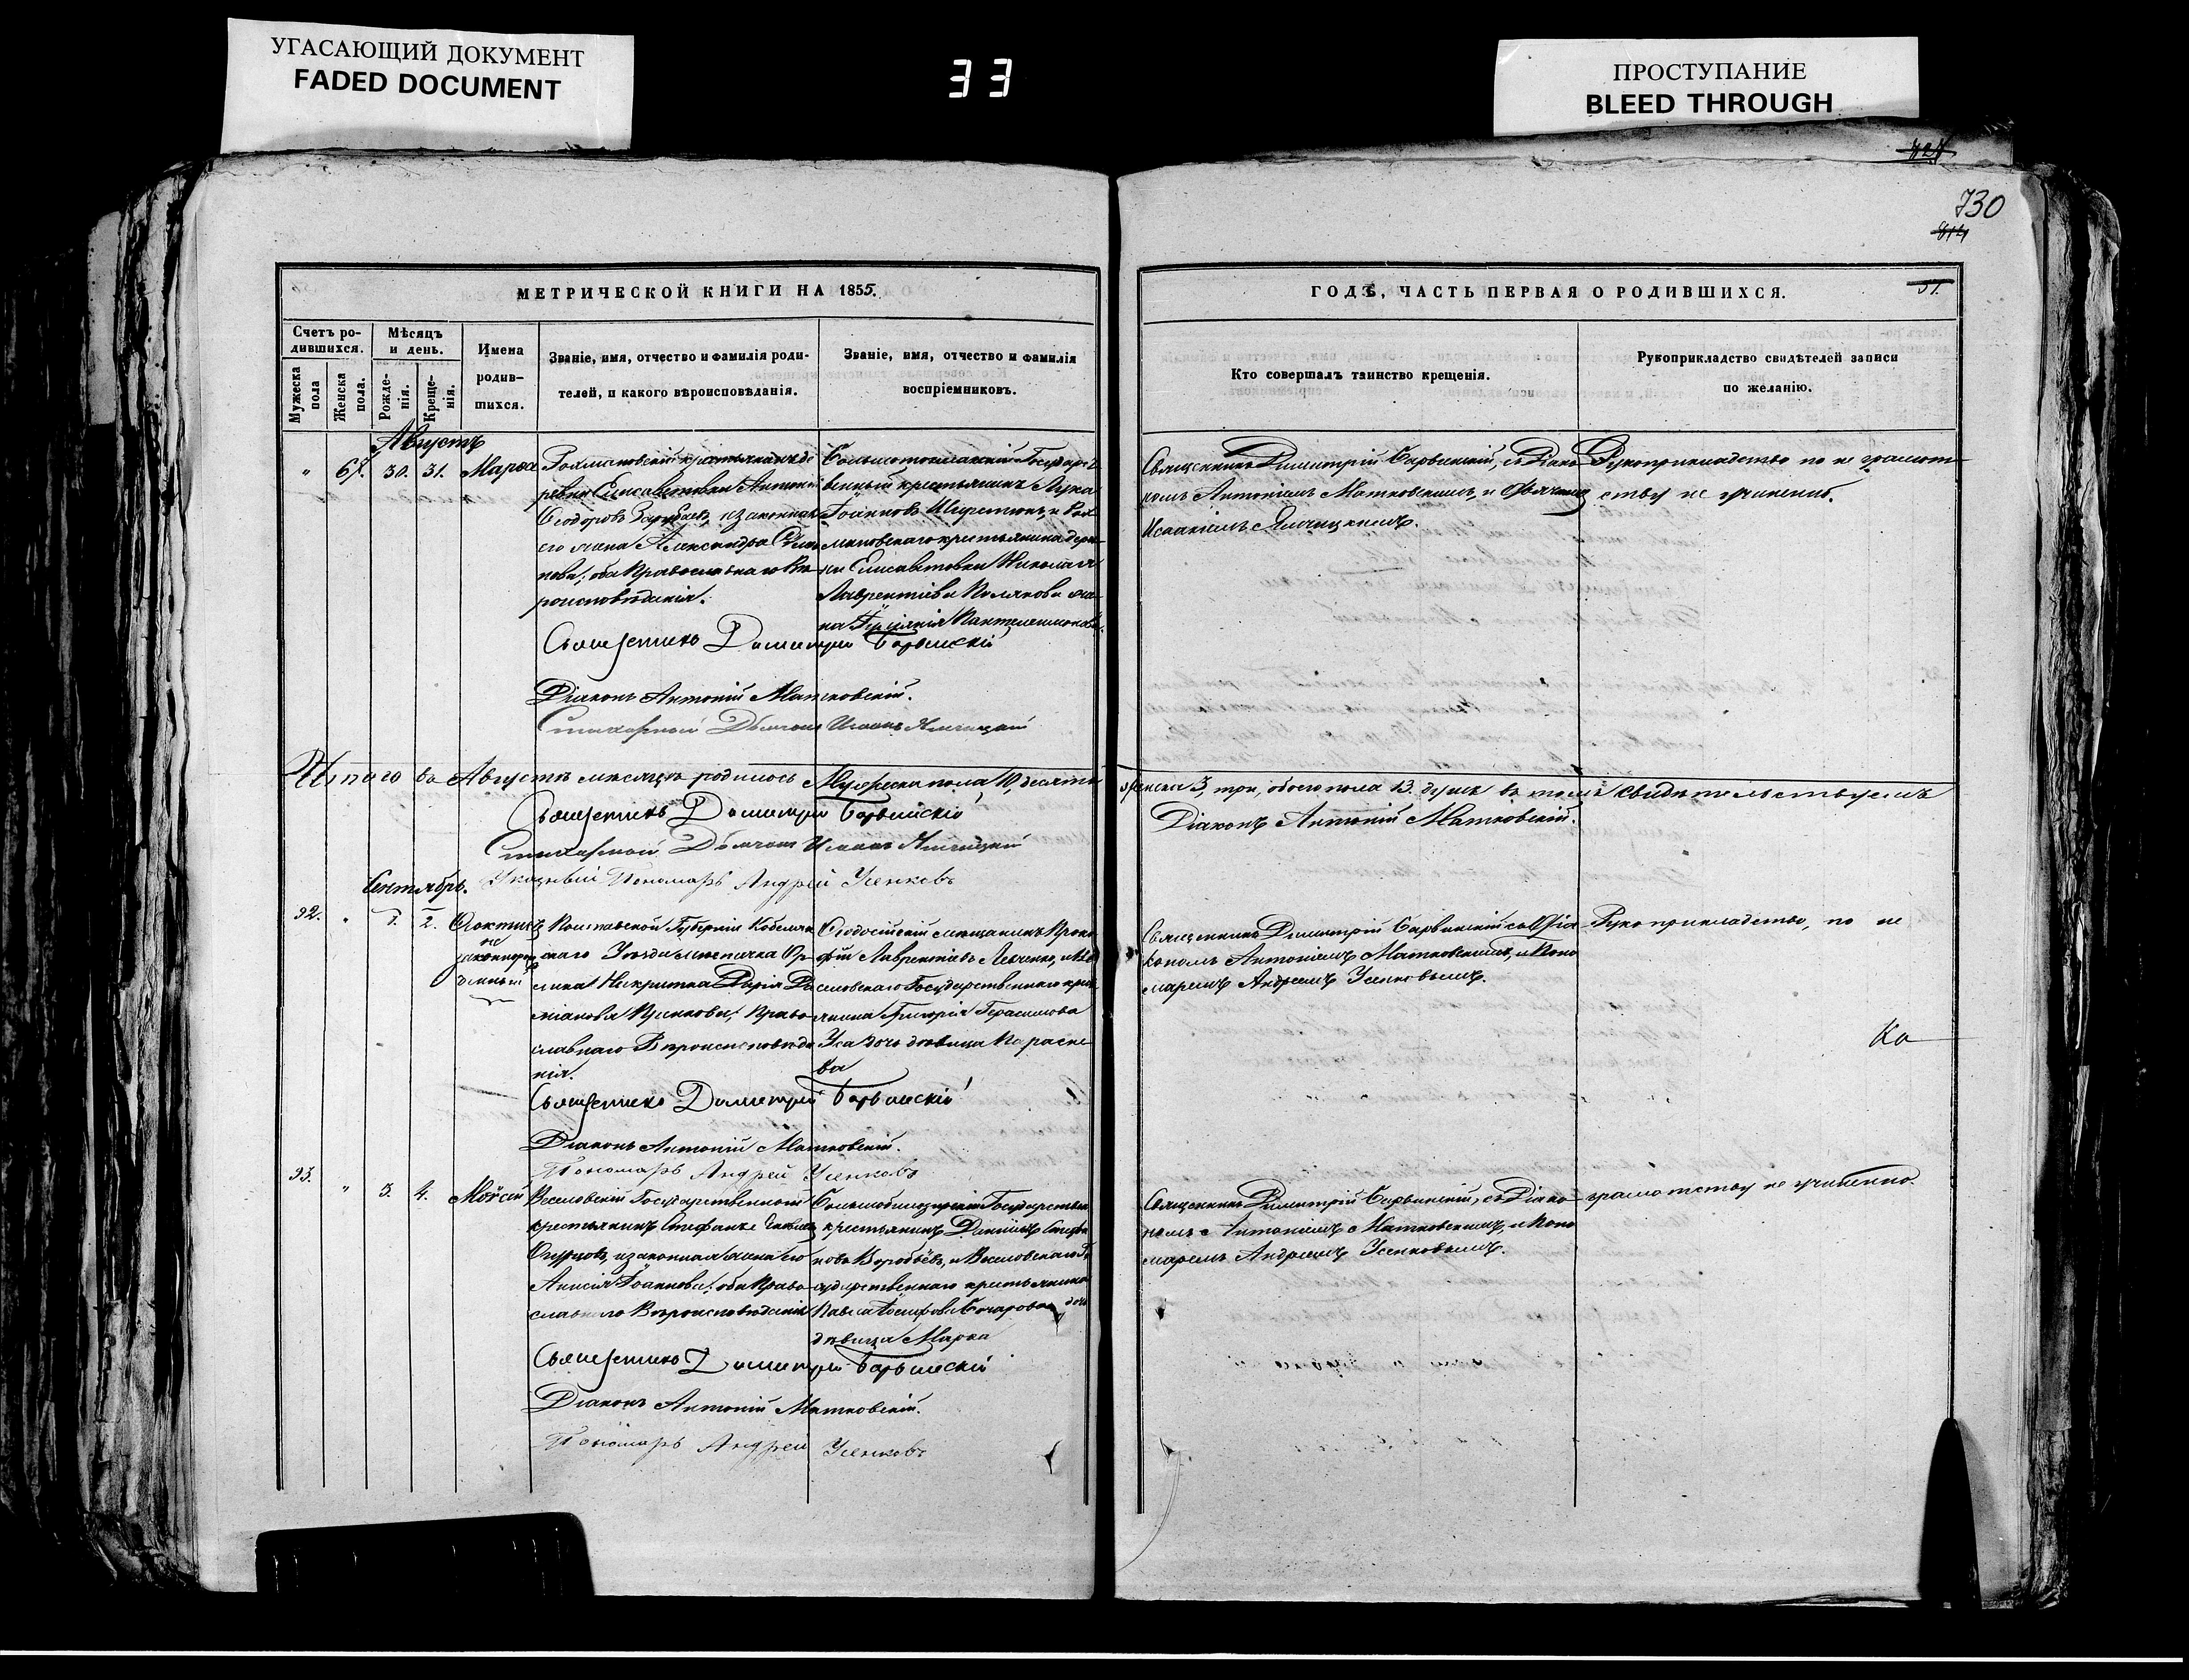 УГАСАЮЩИЙ ДОКУМЕНТ
FADED DOCUMENT
33
ПРОСТУПАНИЕ
BLEED THROUGH
730
МЕТРИЧЕСКОЙ КНИГИ НА 1855.
Счетъ ро-
дившихся.
Мужеска
пола
Женска
пола.
Мѣсяцъ
и день.
Рожде-
нія.
Креще-
нія.
Имена
родив-
шихся.
Званіе, имя, отчество и фамилія роди-
телей, и какого вѣроисповѣданія.
Званіе, имя, отчество и фамилія
воспріемниковъ.
ГОДЪ, ЧАСТЬ ПЕРВАЯ О РОДИВШИХСЯ.
51.
Кто совершалъ таинство крещенія.
Рукоприкладство свидѣтелей записи
по желанію.
Августъ
" 30. 31. Марѳа
крестьянинъ де
ревни Елисаветовки Антоній
Ѳеодоровъ законная
его жена Александра
нова; оба Православнаго Вѣ
роисповѣданія.
Государс
венный крестьянинъ Лука
Іоанновъ и
крестьянина дерев
ни Елисаветовки Николая
Лаврентіева Полякова же
на Пантелеимонова.
Священникъ Димитрій съ Діако
номъ Антоніемъ Матковскимъ, и Дьячкомъ
Исаакіемъ
Рукоприкладство по не грамот
ству не учинено.
Священникъ Димитрій
Діаконъ Антоній Матковскій.
Стихарный Дьячокъ
Итого въ Августѣ мѣсяцѣ родилось Мужеска пола 10, десять
женска 3, три, обоего пола 13. душъ въ томъ свидѣтельствуемъ
Священникъ Димитрій
Діаконъ Антоній Матковскій.
Стихарный Дьячокъ
Указный Пономарь Андрей Усенковъ
Сентябрь.
92. " 1. 2.
не
законнорож
денный
Полтавской Губерніи Кобеляк
скаго Уѣзда мѣстечка
Дарія
Право
славнаго Вѣроисповѣда
нія.
Ѳеодосійскій мѣщанинъ Проко
фій Лаврентіевъ и
Государственнаго крес
янина Григорія Герасимова
Уса дочь дѣвица Параске
ва
Священникъ Димитрій съ Діа
кономъ Антоніемъ Матковскимъ, и Поно
маремъ Андреемъ Усенковымъ.
Рукоприкладство, по не
Ка
Священникъ Димитрій
Діаконъ Антоній Матковскій.
Пономарь Андрей Усенковъ
93. " 3. 4. Моѵсей
Веселовскій Государственный
крестьянинъ Стефанъ
Огурцовъ, и законная жена его
Анисія Іоаннова; оба Право
славнаго Вѣроисповѣданія
Государствен
крестьянинъ Даніилъ Стефа
новъ Воробьёвъ, и Веселовскаго Го
сударственнаго крестьянина
Павла Іосифова Бочарова дочь
дѣвица Марѳа
Священникъ Димитрій съ Діако
номъ Антоніемъ Матковскимъ, и Поно
маремъ Андреемъ Усенковымъ.
грамотству не учинено.
Священникъ Димитрій
Діаконъ Антоній Матковскій.
Пономарь Андрей Усенковъ